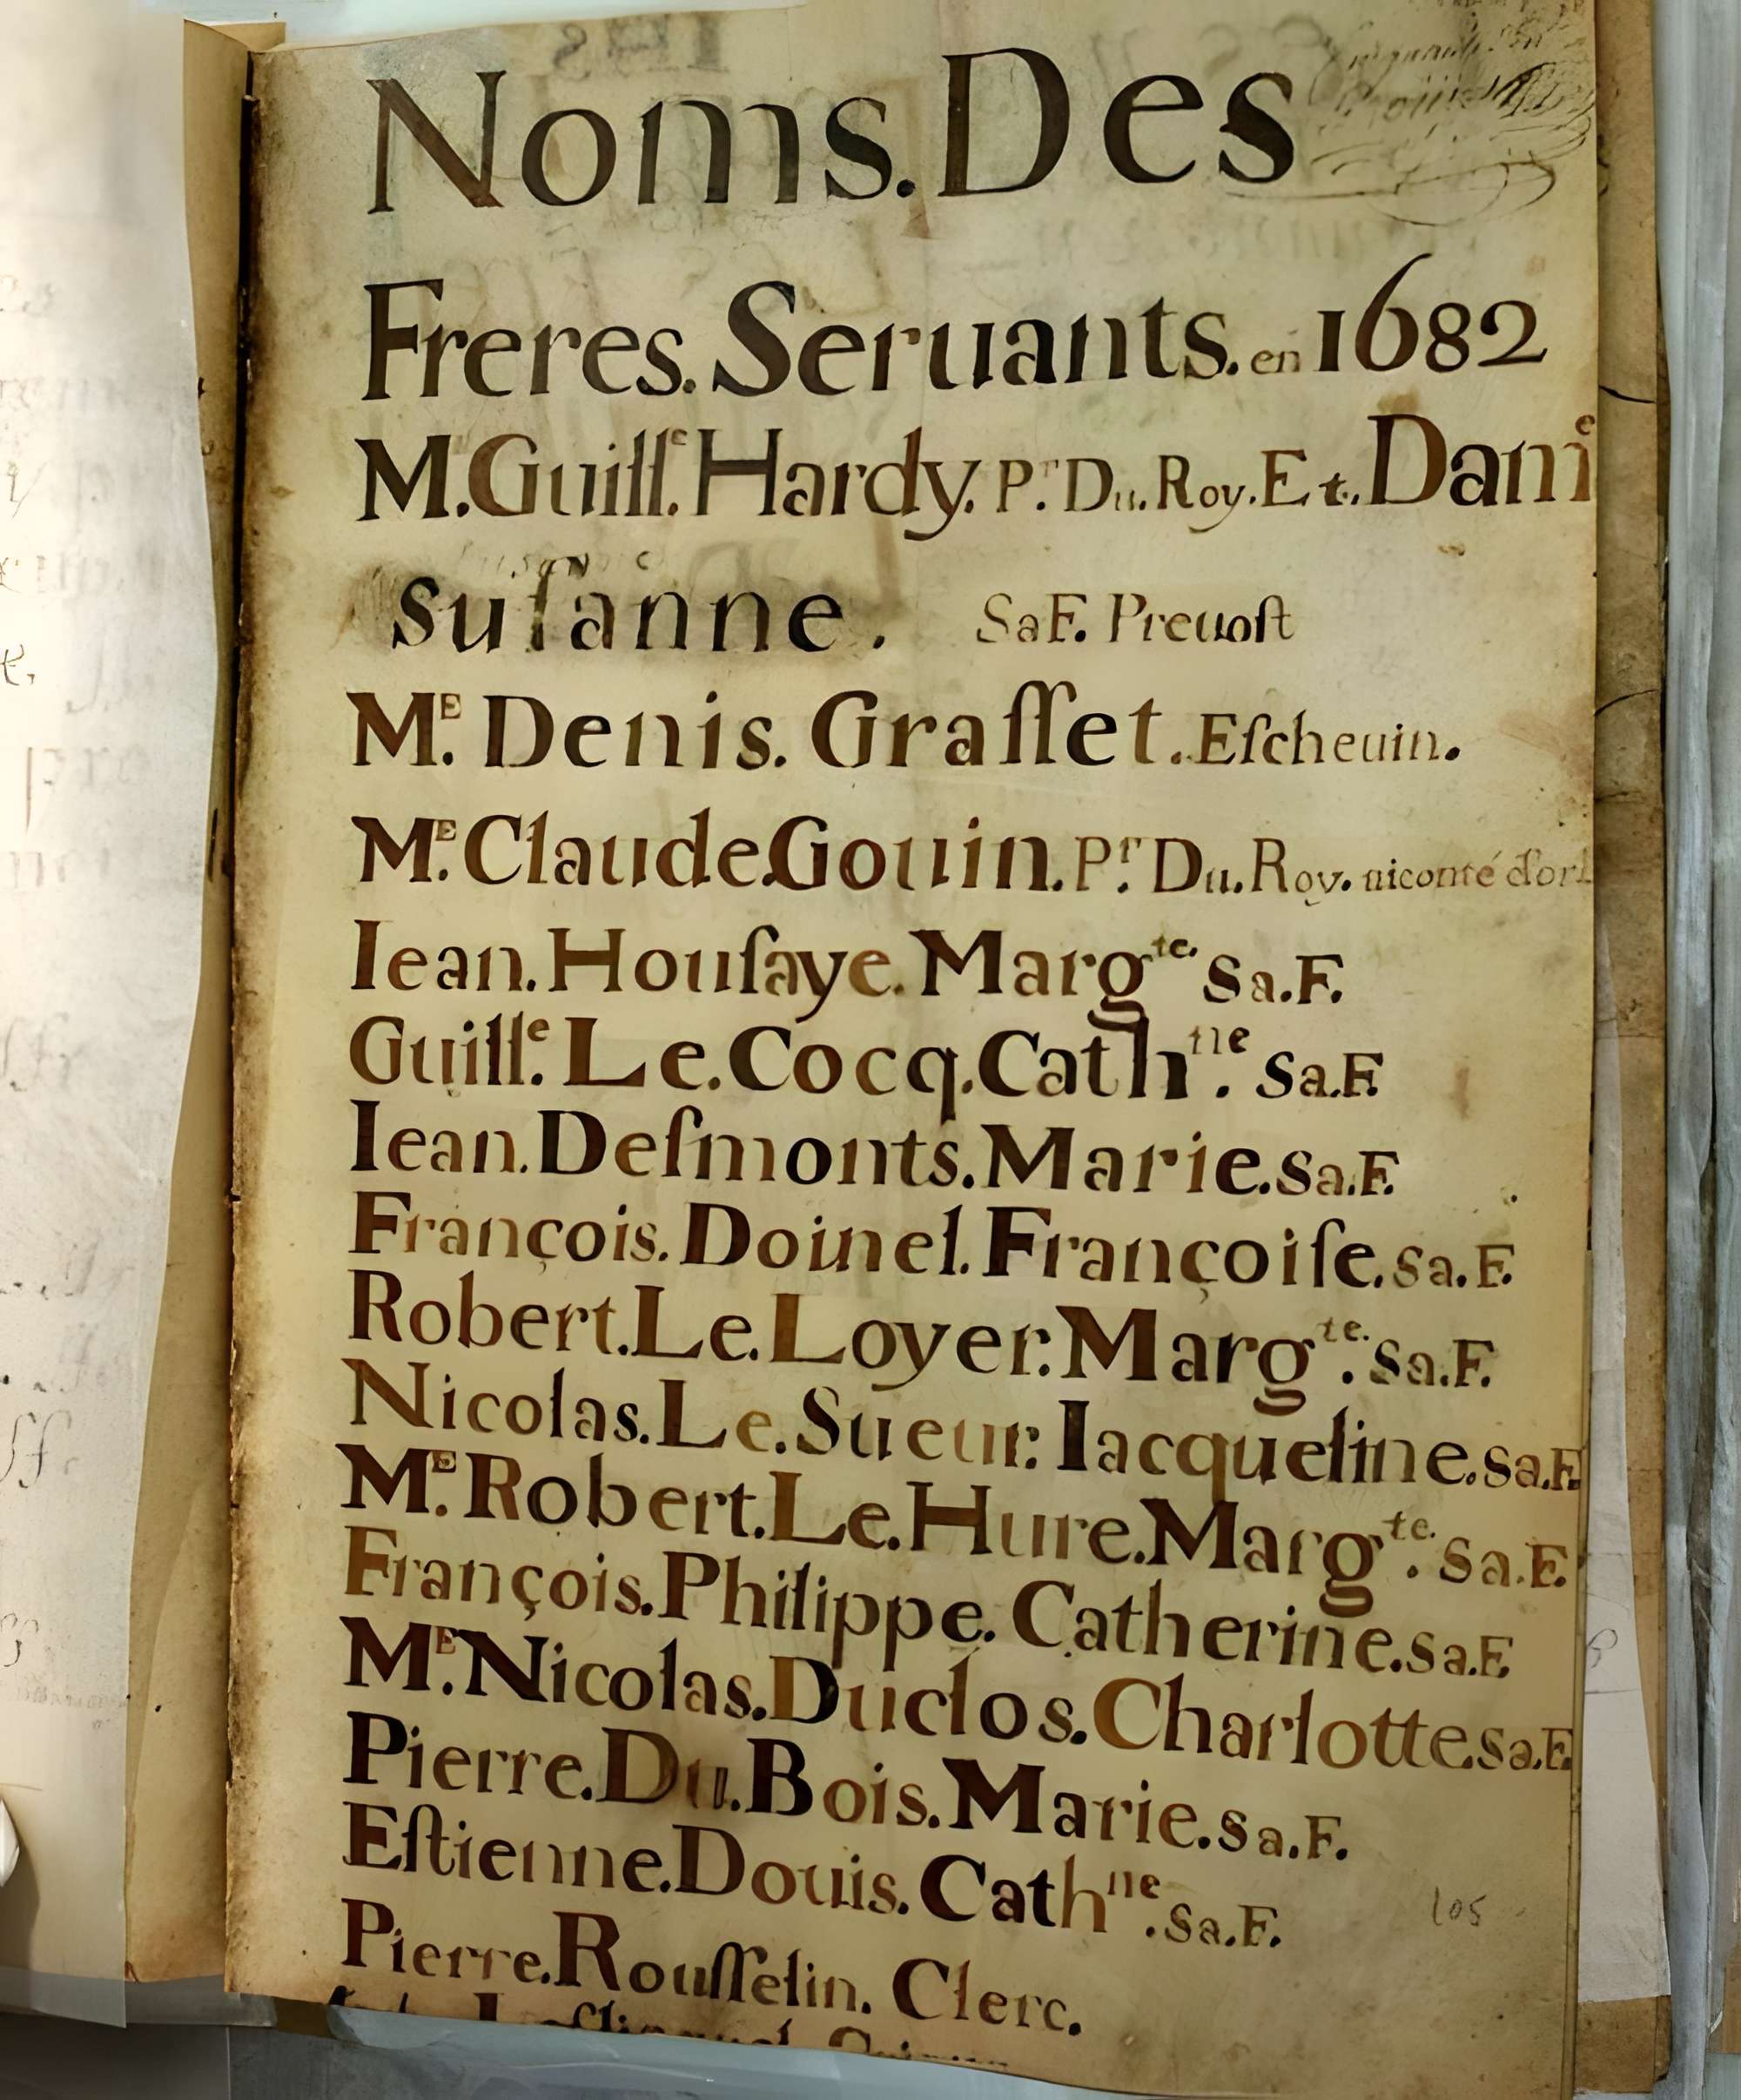 Noms.Des
Freres.Seruants.en 1682
M.Guill.ᵉ Hardy.P.ʳ Du.Roy.Et.Damᵉ
suſanne. SaF. Preuoſt
M.ᴱ Denis. Graſſet.Eſcheuin.
M.ᴱ Claude.Gouin.P.ʳ Du.Roy. uiconté d'orb
Iean.Houſaye.Margᵗᵉ. Sa.F.
Guill.ᵉ Le.Cocq.Cathⁿᵉ. Sa.F.
Iean.Deſmonts.Marie.Sa.F.
François.Doinel.Françoiſe.Sa.F.
Robert.Le.Loyer.Margᵗᵉ. Sa.F.
Nicolas.Le.Sueur.Iacqueline.Sa.F.
M.ᴱ Robert.Le.Hure.Margᵗᵉ. Sa.F.
François.Philippe.Catherine.Sa.F
M.ᴱ Nicolas.Duclos.Charlotte.Sa.F.
Pierre.Du.Bois.Marie.Sa.F.
Eſtienne.Douis.Cathⁿᵉ.Sa.F.
105
Pierre.Rouſſelin. Clerc.